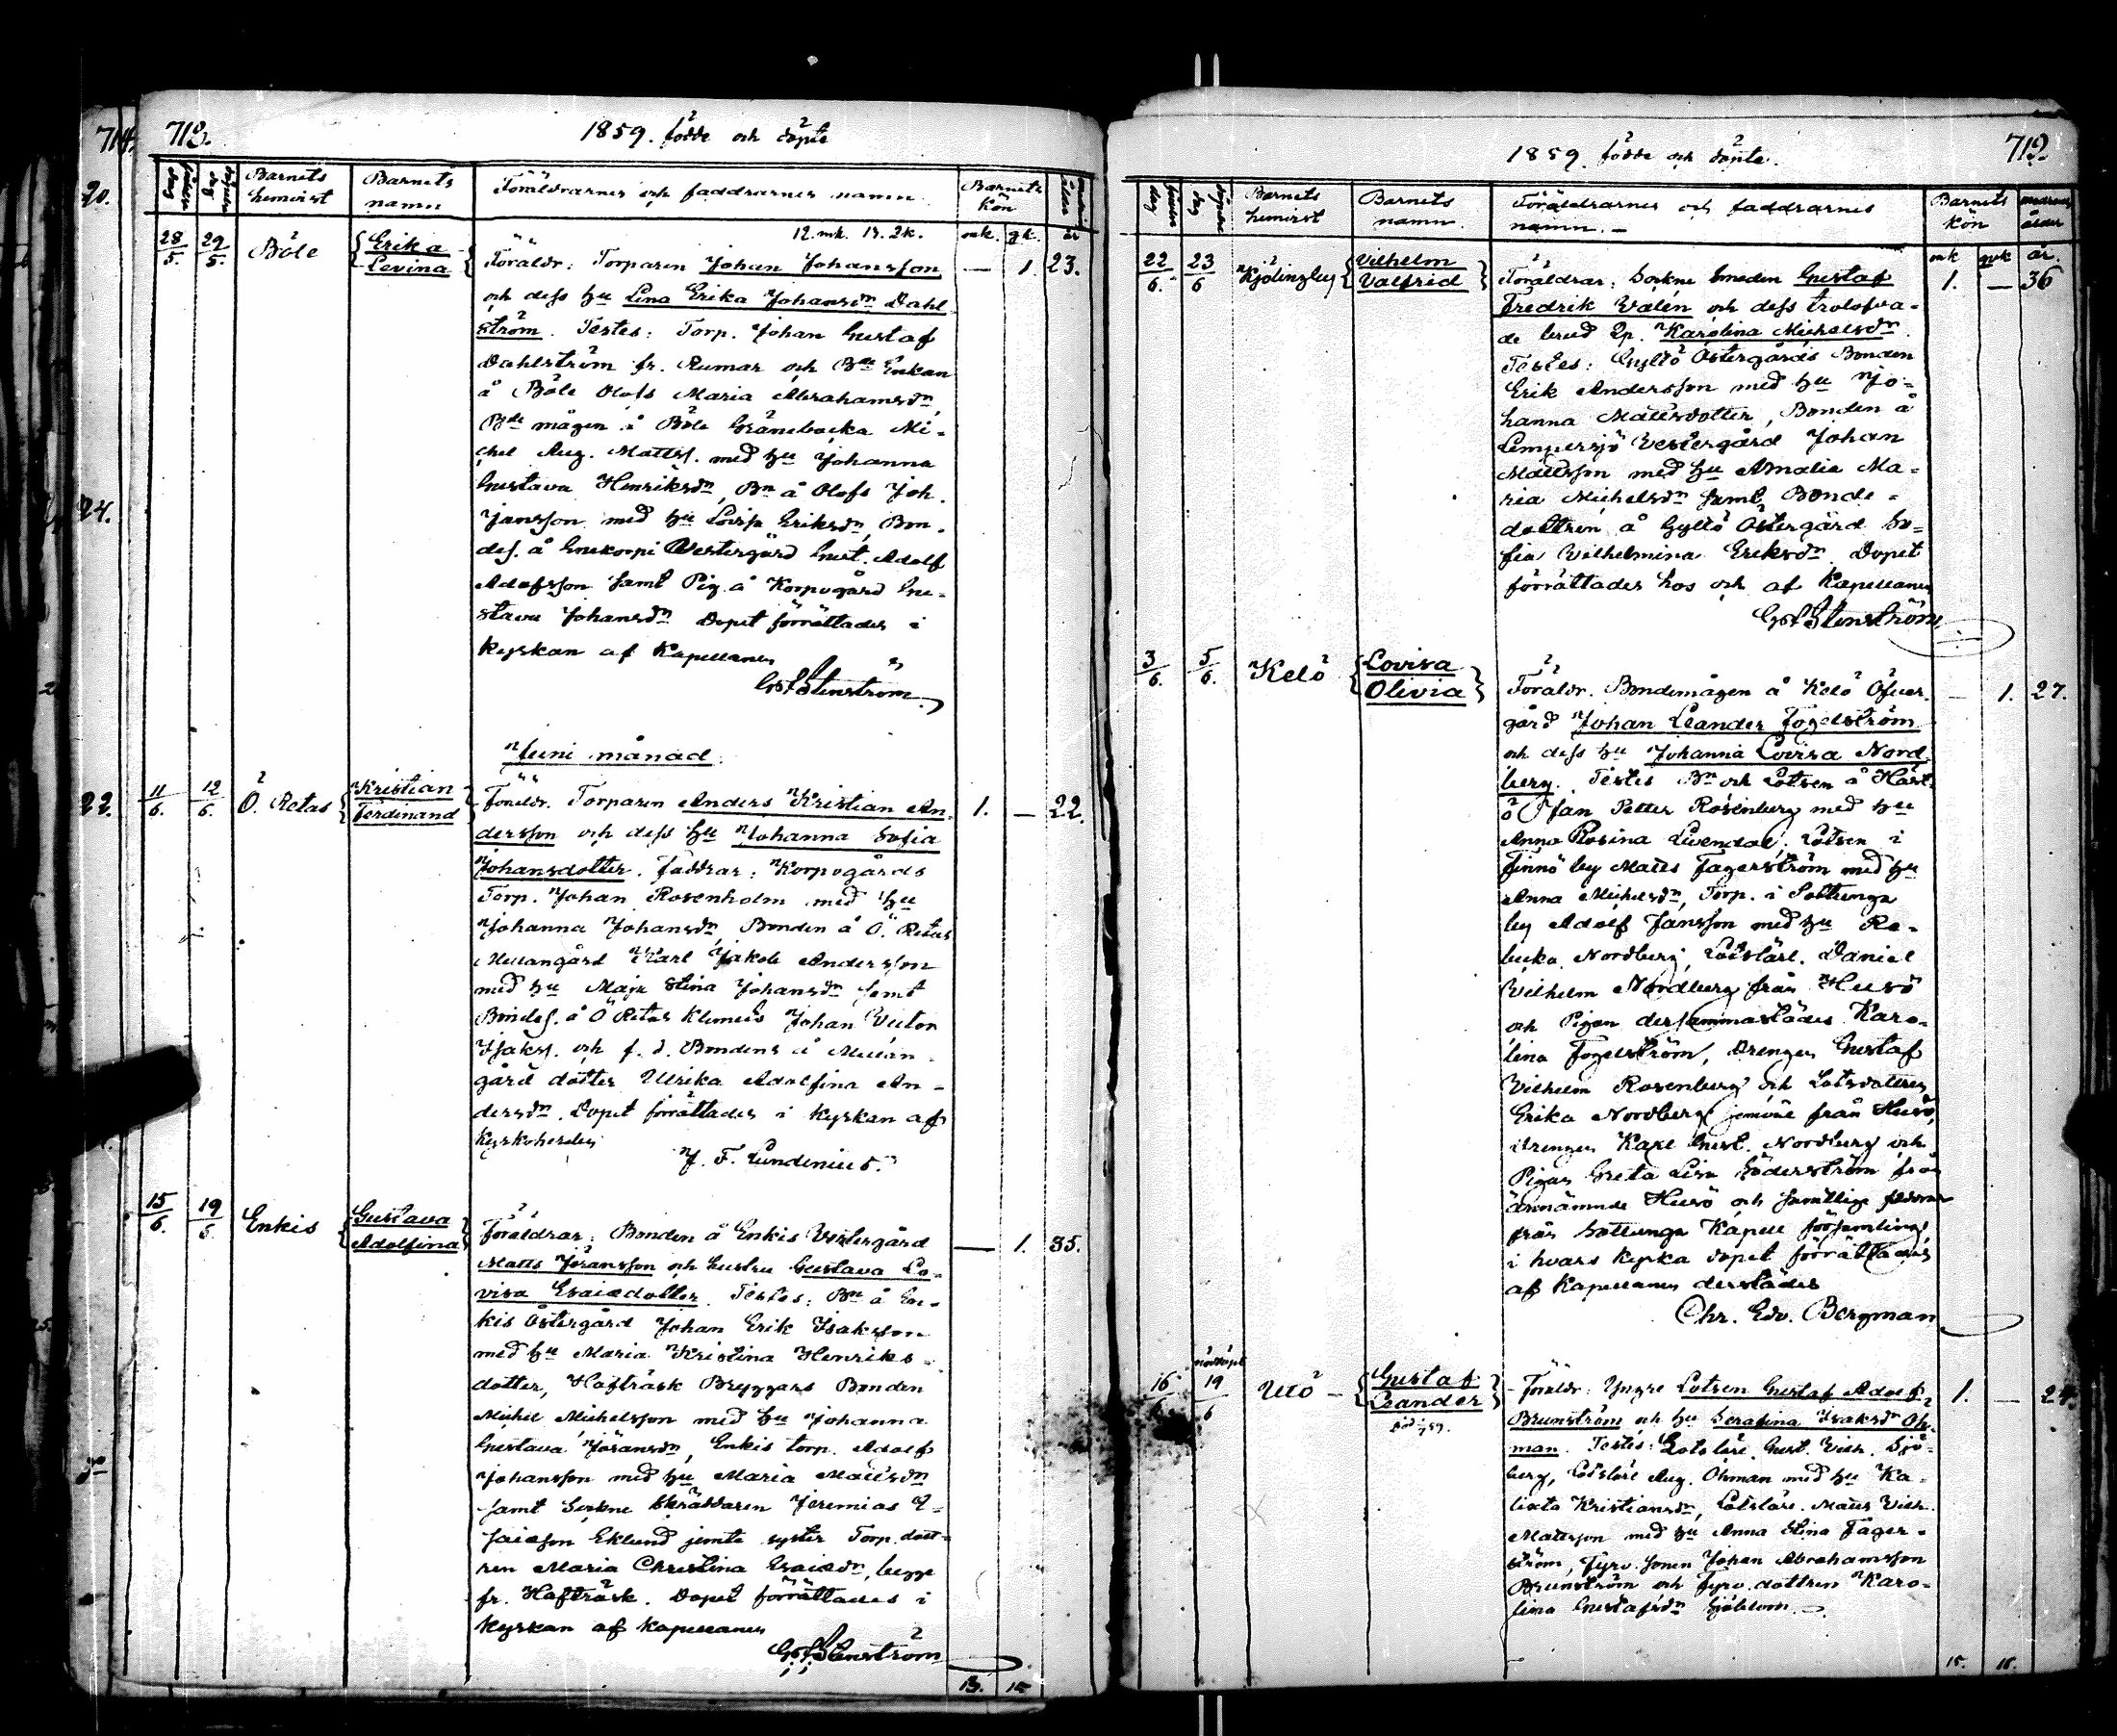 714.
20.
24.
22.
718.
1859. födde och döpte
Barnets hemvist
Barnets namn
Föräldrarnes och faddrarnes namn
Barnets kön
12. mk. 13. 2k.
mk. qk. år
28/5. 29/5. Böle
Erika
Levina
Föräldr: Torparen Johan Johansson
och dess hu Lina Erika Johansdn Dahl
ström. Testes: Torp. Johan Gustaf
Dahlström fr. Rumar och Bde Enkan
å Böle Olofs Maria Abrahamsdn,
Bde mågen å Böle Gränebacka Mi-
chel Aug. Mattss. med hu Johanna
Gustava Henriksdn, Bn å Olofs Joh.
Jansson med hu Lovisa Eriksdn, Bon-
des. å Vestergård Gust. Adolf
Adolfsson samt Pig. å Korpogård Gu-
stava Johansdn Dopet förrättades i
kyrkan af Kapellanen
G. Stenström
— 1. 23.
Juni månad
11/6. 12/6. Ö. Retas
Kristian
Ferdinand
Föräldr. Torparen Anders Kristian An-
dersson och dess hu Johanna Sofia
Johansdotter. faddrar: Korpogårds
Torp. Johan Rosenholm med hu
Johanna Johansdn, Bonden å Ö. Retas
Mellangård Karl Jakob Andersson
med hu Maja Stina Johansdn samt
Bondes. å Ö Retas Klemets Johan Victor
Isakss. och f. d. Bondens å Mellan-
gård dotter Ulrika Adolfina An-
dersdn. Dopet förrättades i kyrkan af
Kyrkoherden
J. F. Lundenius.
1. — 22.
15/6. 19/6. Enkis
Gustava
Adolfina
Föräldrar: Bonden å Enkis Vestergård
Matts Jöransson och hustru Gustava Lo-
visa Esaiedotter. Testes: Bn å En-
kis Östergård Johan Erik Isaksson
med hu Maria Kristina Henriks-
dotter, Hafträsk Bryggars Bonden
Michel Michelsson med hu Johanna
Gustava Jöransdn, Enkis torp. Adolf
Johansson med hu Maria Mattsdn
samt Sockne skräddaren Jeremias E-
saiason Eklund jemte syster Torp. dott-
ren Maria Christina Esaiedn, begge
fr. Hafträsk. Dopet förrättades i
kyrkan af kapellanen
G. Stenström
— 1. 35.
13. 15.
1859. födde och döpte.
719.
Barnets hemvist
Barnets namn.
Föräldrarnes och faddrarnes namn. —
Barnets kön
mk qvk år.
22/6. 23/6 Kjölingby
Vilhelm
Valfrid
Föräldrar: Sockne Smeden Gustaf
Fredrik Valén och dess trolofva-
de brud Qp. Karolina Michelsdn.
Testes: Gyltö Östergårds Bonden
Erik Andersson med hu Jo-
hanna Mattsdotter, Bonden å
Lempersjö Vestergård Johan
Mattsson med hu Amalia Ma-
ria Michelsdn samt Bonde-
dottren å Gyltö Östergård So-
fia Vilhelmina Eriksdn. Dopet
förrättades hos och af Kapellanen
G. Stenström
1. — 36
3/6. 5/6. Kelö
Lovisa
Olivia
Föräldr. Bondemågen å Kelö Öfver-
gård Johan Leander Fogelström
och dess hu Johanna Lovisa Nord
berg. Testes Bn och Lotsen å Hast-
ö Jan Petter Rosenberg med hu
Anna Rosina Livendal, Lotsen i
Finnö by Matts Fagerström med hu
Anna Michelsdn, Torp. i Sottunga
by Adolf Jansson med hu Re-
becka Nordberg, Lotslärl. Daniel
Vilhelm Nordberg från Husö
och Pigan dersammastädes Karo-
lina Fogelström, Drengen Gustaf
Vilhelm Rosenberg och Lotsdottren
Erika Nordberg jemväl från Husö,
drengen Karl Gust. Nordberg och
Pigan Greta Lisa Söderström från
ofvannämnde Husö och samtlige faddrar
från Sottunga Kapell församling,
i hvars kyrka dopet förrättades
af Kapellanen derstädes
Chr. Edv. Bergman
— 1. 27.
nöddöpt
16/6 19/6 Utö —
Gustaf
Leander
Föräldr: Yngre Lotsen Gustaf Adolf
Brunström och hu Serafina Isaksdn Öh-
man. Testes: Lotslärl. Gust. Vilh. Sjö-
berg, Lotslärl Aug. Öhman med hu Ka-
lixta Kristiansdn, Lotslärl. Matts Vilh.
Mattsson med hu Anna Stina Fager-
ström, Fyrv. sonen Johan Abrahamsson
Brunström och Fyrv. dottren Karo-
lina Gustafsdn Sjöblom. —
1. — 24.
15. 15.